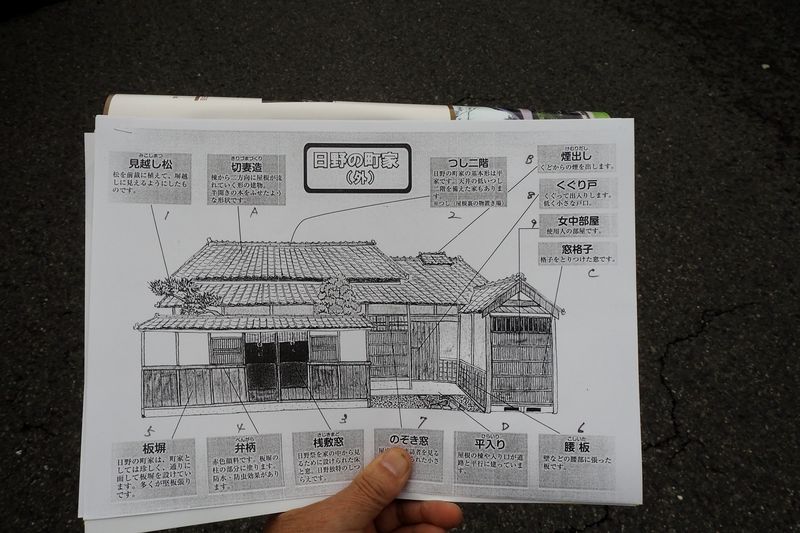 日野の町家
（外）
みこしまつ
見越し松
松を前栽に植えて、塀越
しに見えるようにしたも
のです。
1
きりづまづくり
切妻造
棟から二方向に屋根が流
れていく形の建物。
半開きの本をふせたよう
な形状です。
A
つし二階
日野の町家の基本形は平
家です。天井の低いつし
二階を備えた家もありま
す。
※つし（屋根裏の物置き場）
2
B
けむりだし
煙出し
くどからの煙を出します。
8
くぐり戸
くぐって出入りします。
低く小さな戸口。
9
女中部屋
使用人の部屋です。
窓格子
格子をとりつけた窓です。
C
5
板塀
日野の町家は、町家と
しては珍しく、通りに
面して板塀を設けてい
ます。多くが竪板塀で
す。
4
べんがら
弁柄
赤色顔料です。板塀の
柱の部分に塗ります。
防水・防虫効果があり
ます。
3
さじきまど
桟敷窓
日野祭を家の中から見る
ために設けられた床
と窓。日野独特のしつ
らえです。
7
のぞき窓
D
ひらいり
平入り
屋根の棟や入り口が道
路と平行に建っていま
す。
6
こしいた
腰板
壁などの腰部に張った
板です。